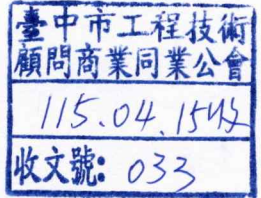 臺中市工程技術
顧問商業同業公會
115.04.15收
收文號: 033